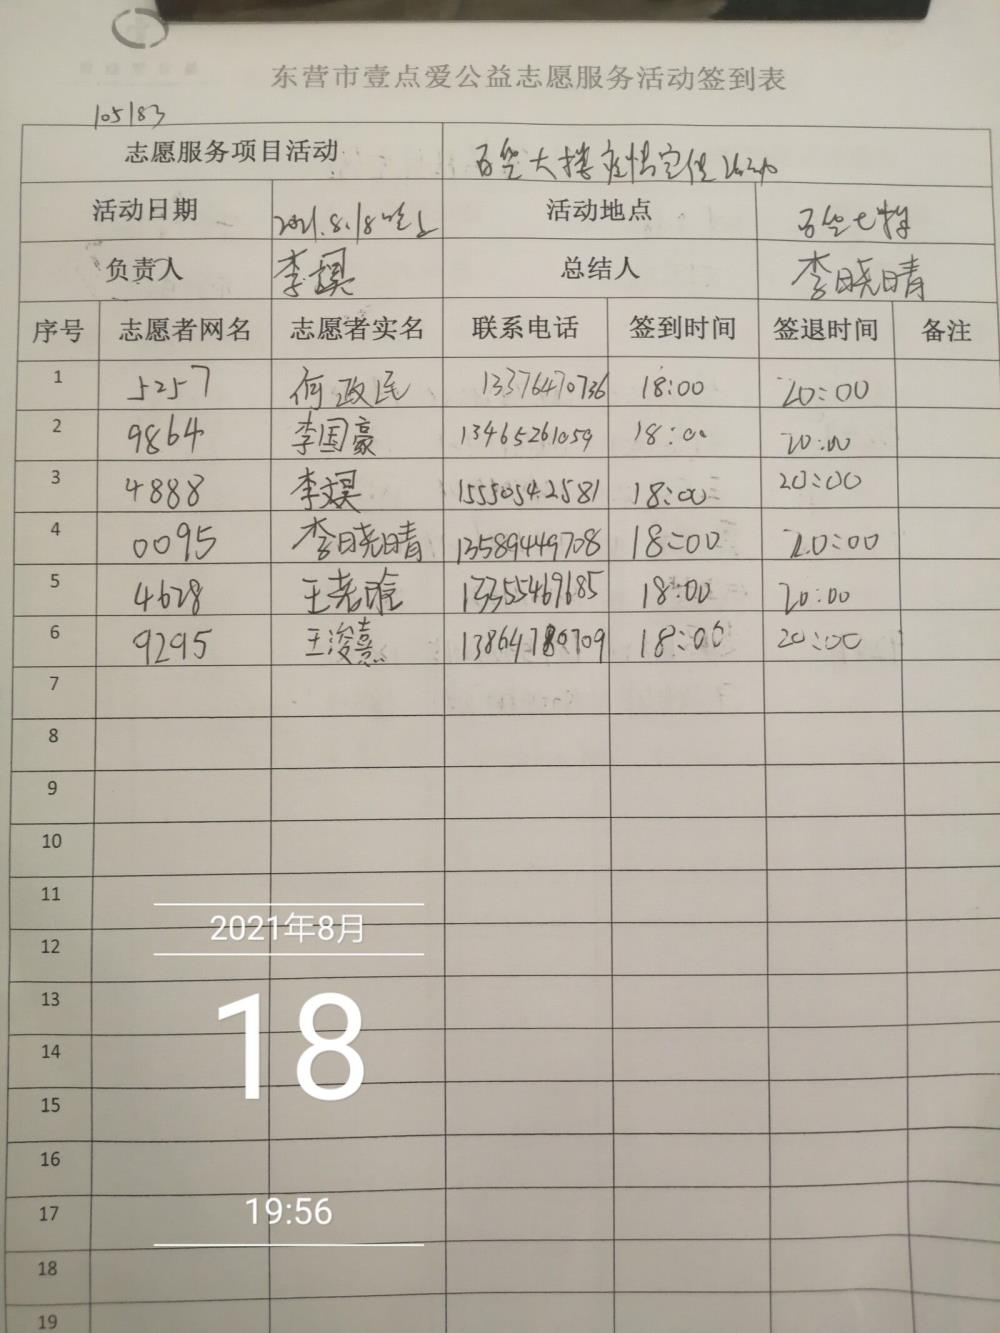 东营市壹点爱公益志愿服务活动签到表
105183
志愿服务项目活动 百货大楼疫情
活动日期 2021.8.18晚上 活动地点 百货大楼
负责人 李昊 总结人 李晓晴
序号 志愿者网名 志愿者实名 联系电话 签到时间 签退时间 备注
1 5257 何政民 13376470736 18:00 20:00
2 9864 李国豪 13465261059 18:00 20:00
3 4888 李昊 15550542581 18:00 20:00
4 0095 李晓晴 13589449708 18:00 20:00
5 4628 王 13355469685 18:00 20:00
6 9295 王浚熹 1386478 709 18:00 20:00
7
8
9
10
11
2021年8月
12
13
18
14
15
16
17
19:56
18
19